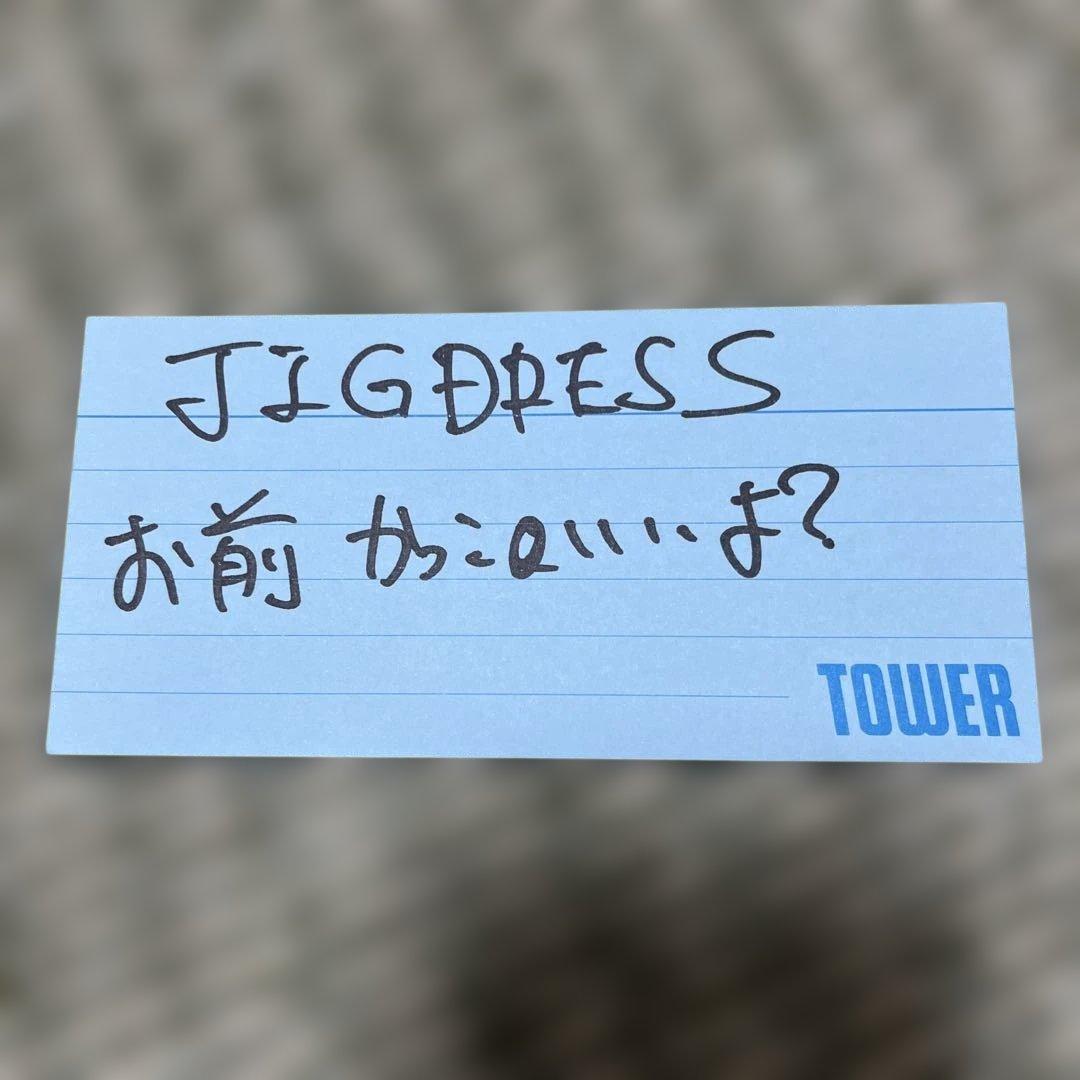 JIGDRESS
お前かっこいいよ?
TOWER